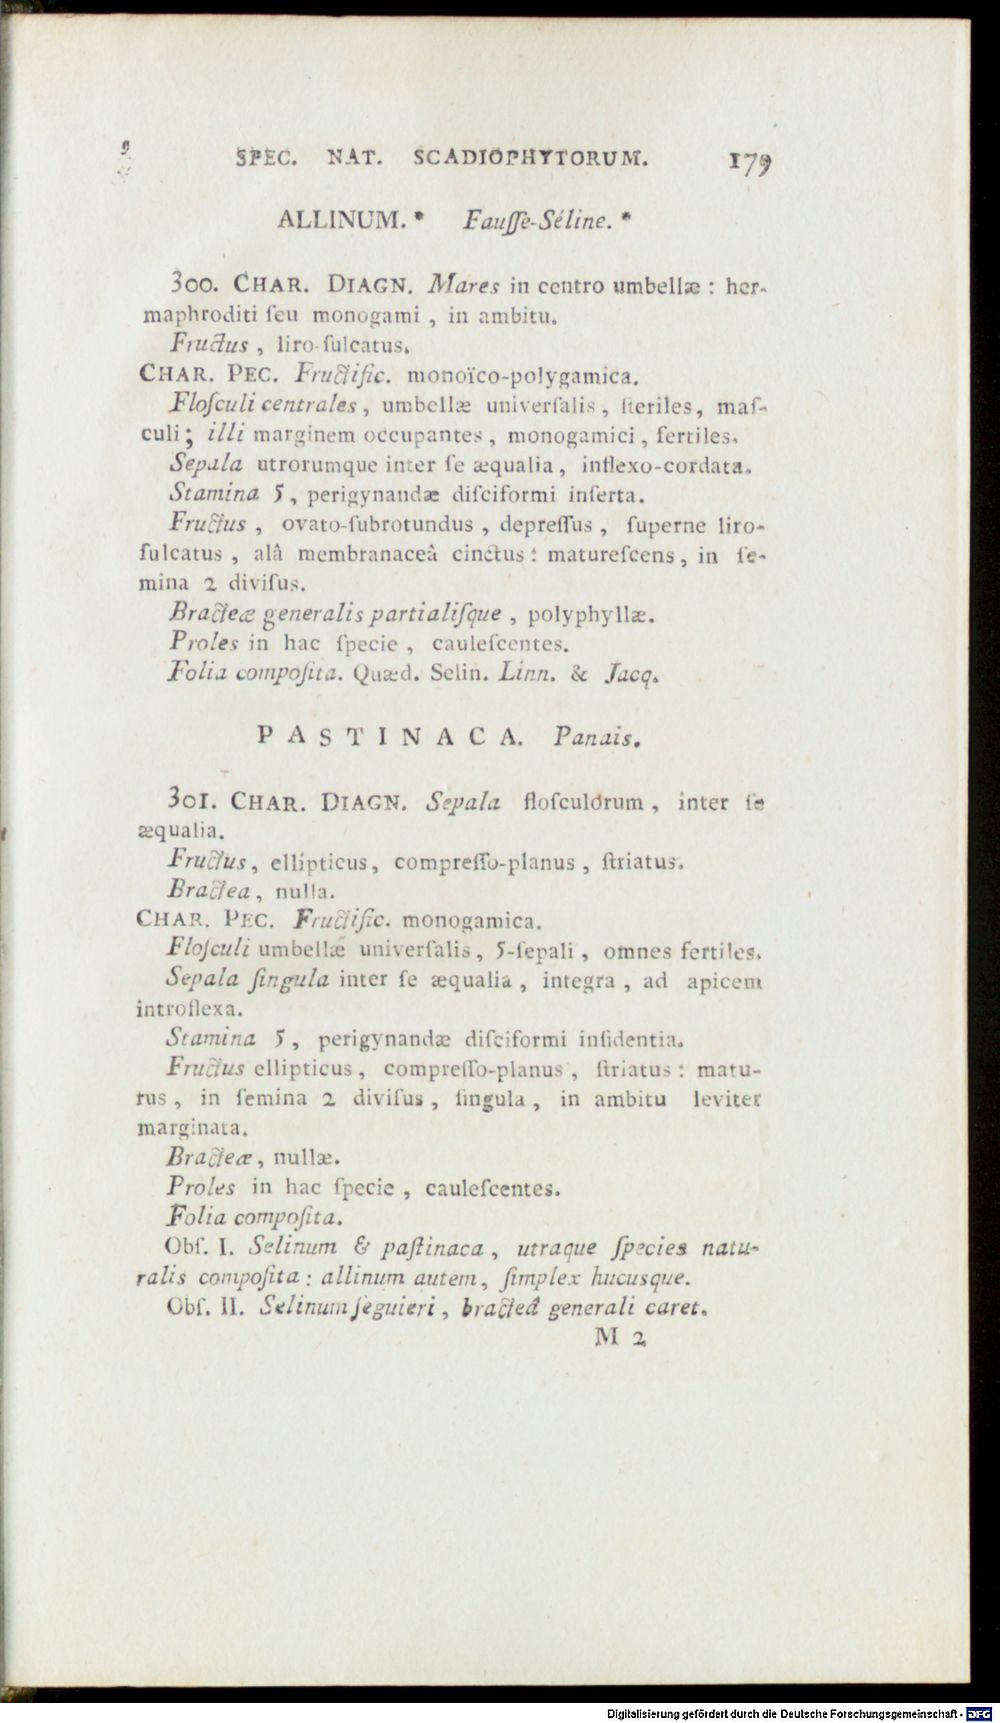 SPEC. NAT. SCADIOPHYTORUM. 179
ALLINUM. * Fauſſe-Séline. *
300. CHAR. DIAGN. Mares in centro umbellæ : her-
maphroditi ſeu monogami , in ambitu.
Fructus , liro-ſulcatus.
CHAR. PEC. Fructific. monoïco-polygamica.
Floſculi centrales , umbellæ univerſalis , ſteriles, maſ-
culi ; illi marginem occupantes , monogamici , fertiles.
Sepala utrorumque inter ſe æqualia , inflexo-cordata.
Stamina 5 , perigynandæ diſciformi inſerta.
Fructus , ovato-ſubrotundus , depreſſus , ſuperne liro-
ſulcatus , alâ membranaceâ cinctus : matureſcens , in ſe-
mina 2 diviſus.
Bracteæ generalis partialiſque , polyphyllæ.
Proles in hac ſpecie , cauleſcentes.
Folia compoſita. Quæd. Selin. Linn. & Jacq.
PASTINACA. Panais.
301. CHAR. DIAGN. Sepala floſculorum , inter ſe
æqualia.
Fructus , ellipticus , compreſſo-planus , ſtriatus.
Bractea , nulla.
CHAR. PEC. Fructific. monogamica.
Floſculi umbellæ univerſalis , 5-ſepali , omnes fertiles.
Sepala ſingula inter ſe æqualia , integra , ad apicem
introflexa.
Stamina 5 , perigynandæ diſciformi inſidentia.
Fructus ellipticus , compreſſo-planus , ſtriatus : matu-
rus , in ſemina 2 diviſus , ſingula , in ambitu leviter
marginata.
Bracteæ , nullæ.
Proles in hac ſpecie , cauleſcentes.
Folia compoſita.
Obſ. I. Selinum & paſtinaca , utraque ſpecies natu-
ralis compoſita : allinum autem , ſimplex hucusque.
Obſ. II. Selinum ſeguieri , bracteâ generali caret.
M 2
Digitalisierung gefördert durch die Deutsche Forschungsgemeinschaft - DFG